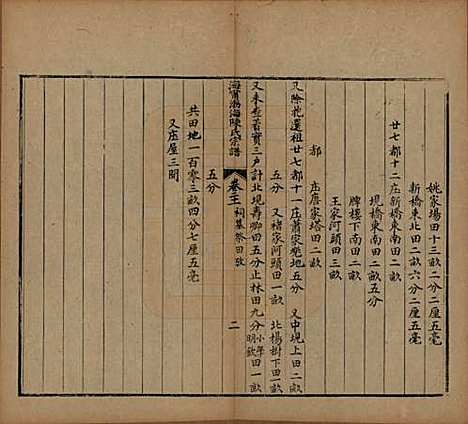 姚家場田十三畝二分二厘五毫
新橋東北田二畝六分二厘五毫
廿七都十二庄新橋東南田二畝
堌橋東南田二畝五分
牌樓下南田二畝
王家河頭田三畝
庄唐家塔田二畝
又除花還祖廿七都十一庄蕭家地五分 又中堌上田二畝
又來查蓄寳三户計北堌壽字田五分止林田九分小學田一畝
五分 又褚家河頭田一畝 北楊樹下田一畝
海寧渤海陳氏宗譜 卷三 祠墓祭田攷 二
五分
共田地一百零三畝四分七厘五毫
又庄屋三間